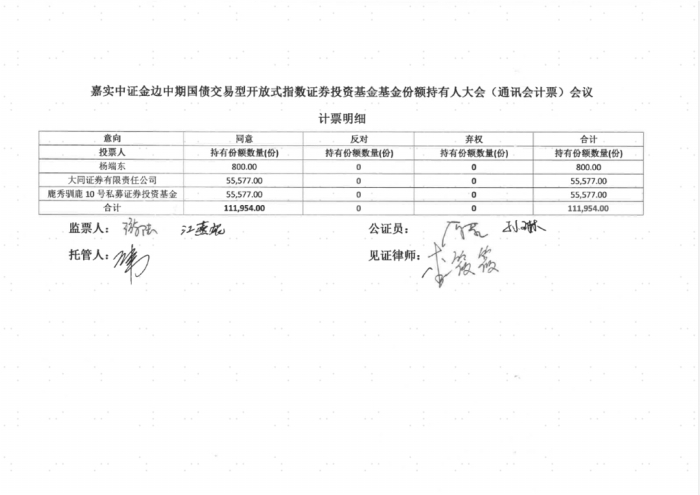 嘉实中证金边中期国债交易型开放式指数证券投资基金基金份额持有人大会（通讯会计票）会议
计票明细
意向 同意 反对 弃权 合计
投票人 持有份额数量(份) 持有份额数量(份) 持有份额数量(份) 持有份额数量(份)
杨端东 800.00 0 0 800.00
大同证券有限责任公司 55,577.00 0 0 55,577.00
鹿秀驯鹿 10 号私募证券投资基金 55,577.00 0 0 55,577.00
合计 111,954.00 0 0 111,954.00
监票人： 公证员： 孙琳
托管人： 见证律师： 李筱筱